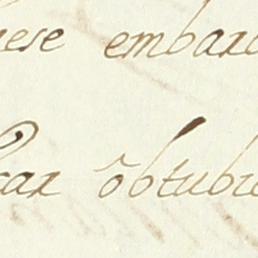 ese embara
car õbtubie